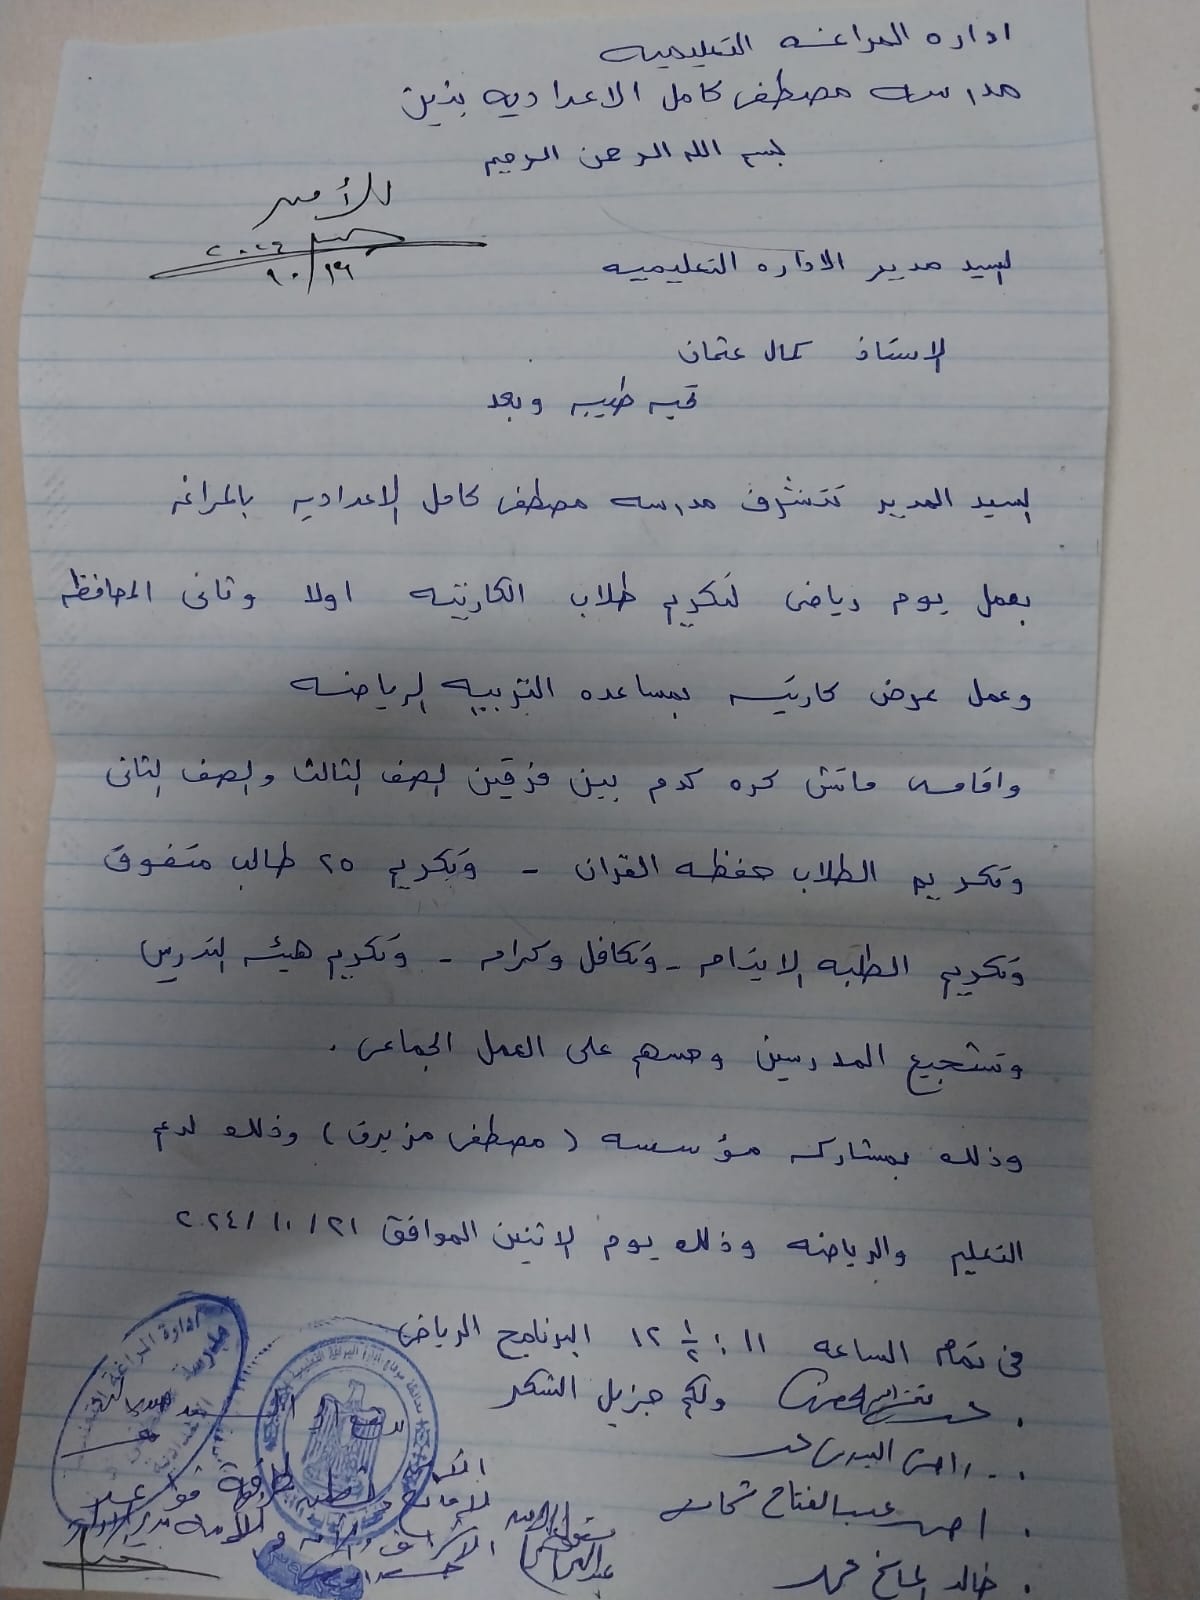 اداره المراغه التعليميه
مدرسه مصطفى كامل الاعداديه بنين
بسم الله الرحمن الرحيم
للأمن
٢٠٢٤
١٠/١٩
السيد مدير الاداره التعليميه
الاستاذ كمال عثمان
تحيه طيبه وبعد
السيد المدير تتشرف مدرسه مصطفى كامل الاعداديه بالمراغه
بعمل يوم رياضى لتكريم طلاب الكارتيه اولا وثانى المحافظه
وعمل عرض كارتيه بمساعده التربيه الرياضه
واقامه ماتش كره كدم بين فرقين الصف الثالث والصف الثانى
وتكريم الطلاب حفظه القران - وتكريم ٢٥ طالب متفوق
وتكريم الطلبه الايتام - وتكافل وكرامه - وتكريم هيئه التدريس
وتشجيع المدرسين وحسهم على العمل الجماعى .
وذلك بمشاركه مؤسسه (مصطفى مزيرق) وذلك لدعم
التعليم والرياضه وذلك يوم الاثنين الموافق ٢٠٢٤/١٠/٢١
فى تمام الساعه ١١ : ١٢ ١/٢ البرنامج الرياضى
ولكم جزيل الشكر
. احمد عبدالفتاح شحات
. خالد الشيخ محمد